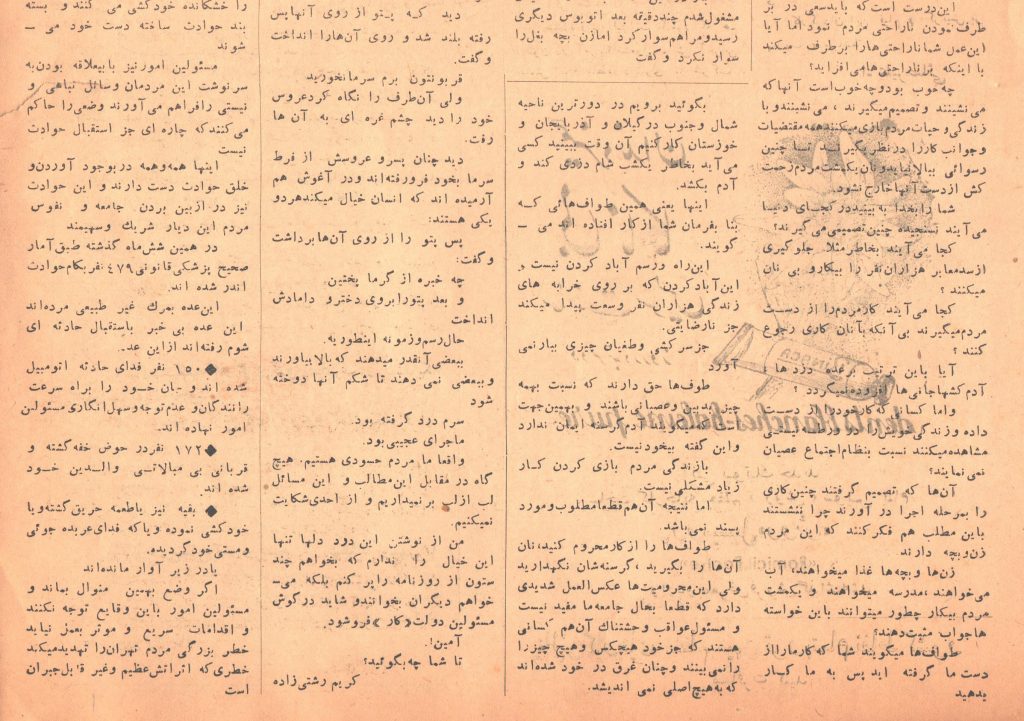 این‌درست است که باید سعی در بر
طرف نمودن ناراحتی مردم نمود اما آیا
این‌عمل شما ناراحتی‌ها را برطرف میکند
یا اینکه بر ناراحتی‌ها می‌افزاید؟
چه خوب بود و چه خوب است آنها که
می‌نشینند و تصمیم میگیرند ، می‌نشینند و با
زندگی و حیات مردم بازی میکنند همه مقتضیات
و جوانب کار را در نظر بگیرند تا چنین
رسوائی ببالا نیاید و نان یکمشت مردم زحمت
کش از دست آنها خارج نشود.
شما را بخدا به بینید در کجای دنیا
می‌آیند نسنجیده چنین تصمیمی می‌گیرند؟
کجا می‌آیند بخاطر مثلا جلوگیری
از سد معابر هزاران نفر را بیکار و بی نان
میکنند ؟
کجا می‌آیند کار مردم را از دست
مردم میگیرند بی‌آنکه بآنان کاری رجوع
کنند ؟
آیا باین ترتیب بر عده دزدها ،
آدمکشها جانی‌ها افزوده نمیگردد ؟
و اما کسانی که کار خود را از دست
داده و زندگی خویش را در ورطه نیستی
مشاهده میکنند نسبت بنظام اجتماع عصیان
نمی نمایند؟
آن‌ها که تصمیم گرفتند چنین کاری
را بمرحله اجرا در آورند چرا ننشستند
باین مطلب هم فکر کنند که این مردم
زن و بچه دارند
زن‌ها و بچه‌ها غذا میخواهند، آب
می‌خواهند ، مدرسه میخواهند و یکمشت
مردم بیکار چطور میتوانند باین خواسته
ها جواب مثبت دهند؟
طواف‌ها میگویند شما که کار ما را از
دست ما گرفته اید پس به ما کار
بدهید
مشغول شدم چند دقیقه بعد اتوبوس دیگری
رسید و مرا هم سوار کرد اما زن بچه بغل را
سوار نکرد و گفت
بگوئید برویم در دورترین ناحیه
شمال و جنوب در گیلان و آذربایجان و
خوزستان کار کنیم آن وقت ببینید کسی
می‌آید بخاطر یکشب شام دزدی کند و
آدم بکشد.
اینها یعنی همین طواف‌هائی که
بنا بفرمان شما از کار افتاده اند می -
گویند.
این‌راه و رسم آباد کردن نیست و
این‌آباد کردن که بر روی خرابه های
زندگی هزاران نفر وسعت پیدا میکند
جز نارضایتی.
جز سرکشی و طغیان چیزی ببار نمی
آورد
طواف‌ها حق دارند که نسبت بهمه
چیز بدبین و عصبانی باشند و بهمین جهت
گرسنه ایمان ندارد
و این گفته بیخود نیست.
با زندگی مردم بازی کردن کار
زیاد مشکلی نیست.
اما نتیجه آن‌هم قطعا مطلوب و مورد
پسند نمی‌باشد.
طواف‌ها را از کار محروم کنید ، نان
آن‌ها را بگیرید ، گرسنه‌شان نگهدارید
ولی این‌محرومیت‌ها عکس‌العمل شدیدی
دارد که قطعا بحال جامعه‌ما مفید نیست
و مسئول عواقب وحشتناک آن‌هم کسانی
هستند که جز خود هیچکس و هیچ چیز را
را نمی‌بینند و چنان غرق در خود شده‌اند
که به هیچ اصلی نمی اندیشند.
دید که پتو از روی آنها پس
رفته بلند شد و روی آن‌ها را انداخت
و گفت.
قربونتون برم سرما نخورید
ولی آن‌طرف را نگاه کرد عروس
خود را دید چشم غره ای به آن ها
رفت.
دید چنان پسر و عروسش از فرط
سرما بخود فرو رفته‌اند و در آغوش هم
آرمیده اند که انسان خیال میکند هر دو
یکی هستند:
پس پتو را از روی آن‌ها برداشت
و گفت:
چه خبره از گرما پختین.
و بعد پتو را بروی دختر و دامادش
انداخت
حال رسم و زمونه اینطوریه.
ببعضی آنقدر میدهند که بالا بیاورند
و ببعضی نمی دهند تا شکم آنها دوخته
شود
سرم درد گرفته بود.
ماجرای عجیبی بود.
واقعا ما مردم حسودی هستیم. هیچ
گاه در مقابل این مطالب و این مسائل
لب از لب بر نمیداریم و از احدی شکایت
نمیکنیم.
من از نوشتن این درد دلها تنها
این خیال را ندارم که بخواهم چند
ستون از روزنامه را پر کنم بلکه می-
خواهم دیگران بخوانند و شاید در گوش
مسئولین دولت «کار» فرو شود.
آمین!
تا شما چه بگوئید؟
کریم رشتی‌زاده
را خشکانده خودکشی می کنند و بسته
بند حوادث ساخته دست خود می -
شوند
مسئولین امور نیز با بیعلاقه بودن به
سرنوشت این مردمان وسائل تباهی و
نیستی را فراهم می‌آورند وضعی را حاکم
می‌کنند که چاره ای جز استقبال حوادث
نیست
اینها همه و همه در بوجود آوردن و
خلق حوادث دست دارند و این حوادث
نیز در از بین بردن جامعه و نفوس
مردم این دیار شریک و سهیمند
در همین شش‌ماه گذشته طبق آمار
صحیح پزشکی قانونی ۴۷۹ نفر بکام حوادث
اندر شده اند.
این‌عده بمرگ غیر طبیعی مرده‌اند
این عده بی خبر باستقبال حادثه ای
شوم رفته‌اند از این عده.
◆ ۱۵۰ نفر فدای حادثه اتومبیل
شده اند و جان خود را براه سرعت
رانندگان و عدم توجه و سهل انگاری مسئولین
امور نهاده اند.
◆ ۱۷۲ نفر در حوض خفه گشته و
قربانی بی مبالاتی والدین خود
شده اند.
◆ بقیه نیز یا طعمه حریق گشته و یا
خودکشی نموده و یا که فدای عربده جوئی
و مستی خود گردیده.
یا در زیر آوار مانده‌اند
اگر وضع بهمین منوال بماند و
مسئولین امور باین وقایع توجه نکنند
و اقدامات سریع و موثر بعمل نیاید
خطر بزرگی مردم تهران را تهدید میکند
خطری که اثراتش عظیم و غیر قابل جبران
است